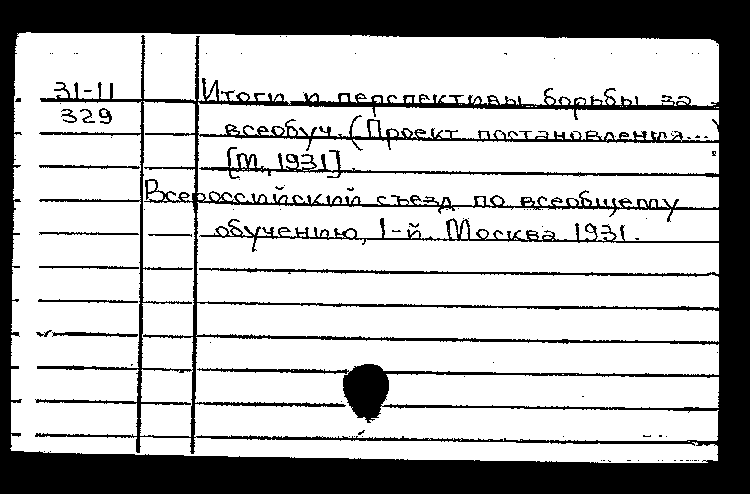 31-11 Итоги и перспективы борьбы за
329 всеобуч. (Проект постановления...)
[М., 1931].
Всероссийский съезд по всеобщему
обучению, 1-й. Москва. 1931.